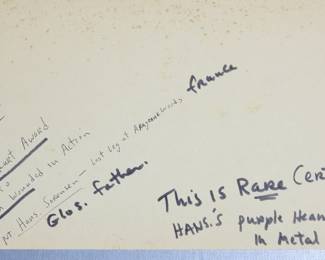 Award
wounded in Action
Hans Sorensen - Last Leg of Argonne Woods, France
Glo's. father.
This Is Rare Cer
HANS.'s purple Hear
In Metal